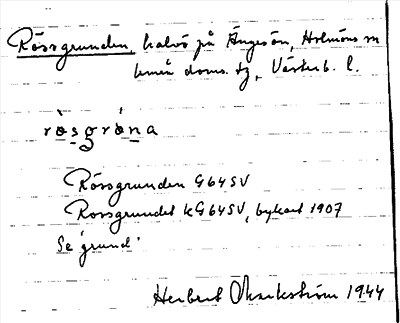 Rössgrunden, halvö på Ängesön, Holmöns sn
Umeå doms. tg, Västerb. l.
rösgróna
Rössgrunden G64SV
Rossgrundet kG64SV, bykart 1907
Se 'grund'
Herbert Markström 1944